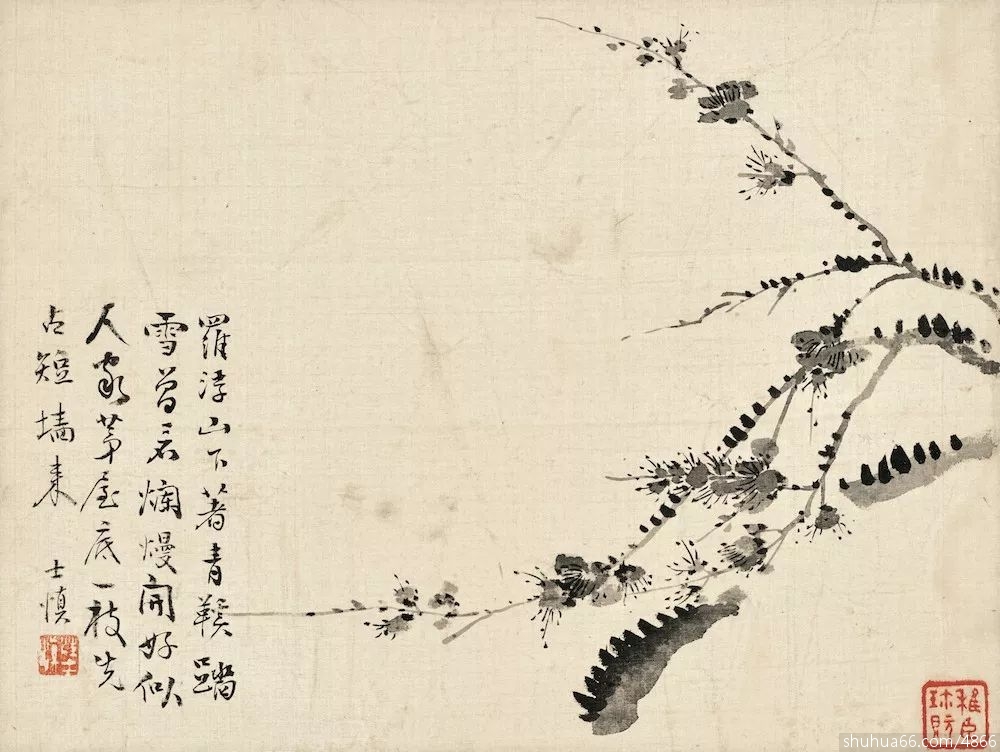 羅浮山下著青鞵踏
雪曾看爛熳開好似
人家茅屋底一枝先
占短墙来
士慎
shuhua66.com/4866